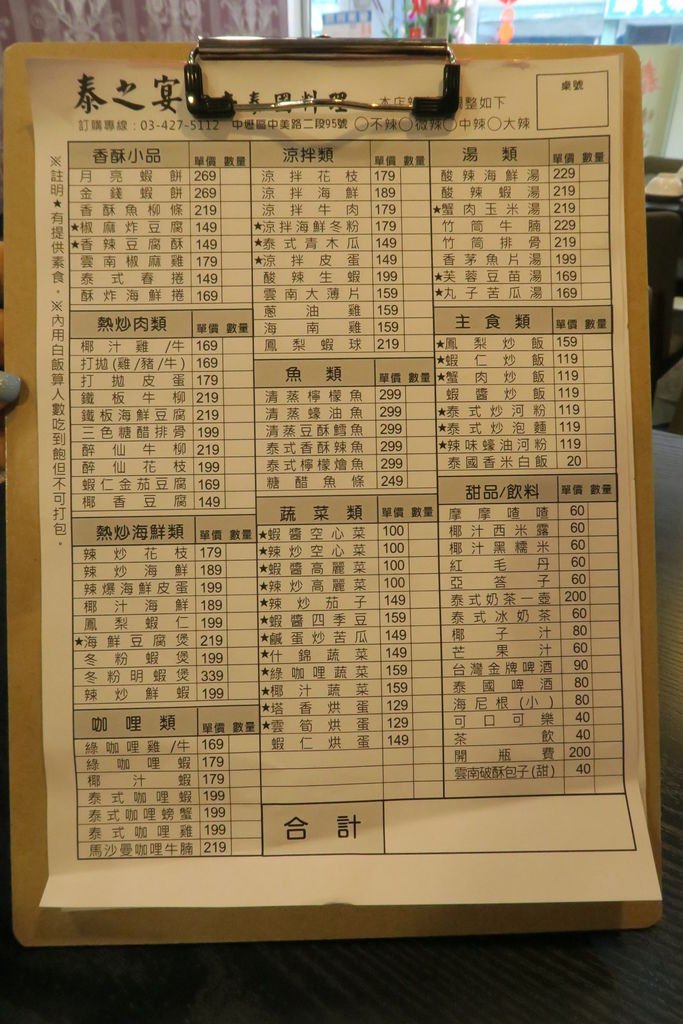 泰之宴 泰國料理
本店 調整如下
桌號
訂購專線：03-427-5112 中壢區中美路二段95號 ○不辣○微辣○中辣○大辣
※註明★有提供素食。※內用白飯算人數吃到飽但不可打包。
香酥小品 單價 數量
月亮蝦餅 269
金錢蝦餅 269
香酥魚柳條 219
★椒麻炸豆腐 149
★香辣豆腐酥 149
雲南椒麻雞 179
泰式春捲 149
酥炸海鮮捲 169
熱炒肉類 單價 數量
椰汁雞/牛 169
打拋(雞/豬/牛) 169
打拋皮蛋 179
鐵板牛柳 219
鐵板海鮮豆腐 219
三色糖醋排骨 199
醉仙牛柳 219
醉仙花枝 199
蝦仁金茄豆腐 169
椰香豆腐 149
熱炒海鮮類 單價 數量
辣炒花枝 179
辣炒海鮮 189
辣爆海鮮皮蛋 199
椰汁海鮮 189
鳳梨蝦仁 199
★海鮮豆腐煲 219
冬粉蝦煲 199
冬粉明蝦煲 339
辣炒鮮蝦 199
咖哩類 單價 數量
綠咖哩雞/牛 169
綠咖哩蝦 179
椰汁蝦 179
泰式咖哩蝦 199
泰式咖哩螃蟹 199
泰式咖哩雞 199
馬沙曼咖哩牛腩 219
涼拌類 單價 數量
涼拌花枝 179
涼拌海鮮 189
涼拌牛肉 179
★涼拌海鮮冬粉 179
★泰式青木瓜 149
★涼拌皮蛋 149
酸辣生蝦 199
雲南大薄片 159
蔥油雞 159
海南雞 159
鳳梨蝦球 219
魚類 單價 數量
清蒸檸檬魚 299
清蒸蠔油魚 299
清蒸豆酥鱈魚 299
泰式香酥辣魚 299
泰式檸檬燴魚 299
糖醋魚條 249
蔬菜類 單價 數量
★蝦醬空心菜 100
★辣炒空心菜 100
★蝦醬高麗菜 100
★辣炒高麗菜 100
★辣炒茄子 149
★蝦醬四季豆 159
★鹹蛋炒苦瓜 149
★什錦蔬菜 149
★綠咖哩蔬菜 159
★椰汁蔬菜 159
★塔香烘蛋 129
★雲筍烘蛋 129
蝦仁烘蛋 149
合計
湯類 單價 數量
酸辣海鮮湯 229
酸辣蝦湯 219
★蟹肉玉米湯 219
竹筒牛腩 229
竹筒排骨 219
香茅魚片湯 199
★芙蓉豆苗湯 169
★丸子苦瓜湯 169
主食類 單價 數量
★鳳梨炒飯 159
★蝦仁炒飯 119
★蟹肉炒飯 119
蝦醬炒飯 119
★泰式炒河粉 119
★泰式炒泡麵 119
★辣味蠔油河粉 119
泰國香米白飯 20
甜品/飲料 單價 數量
摩摩喳喳 60
椰汁西米露 60
椰汁黑糯米 60
紅毛丹 60
亞答子 60
泰式奶茶一壺 200
泰式冰奶茶 60
椰子汁 80
芒果汁 60
台灣金牌啤酒 90
泰國啤酒 80
海尼根(小) 80
可口可樂 40
茶飲 40
開瓶費 200
雲南破酥包子(甜) 40